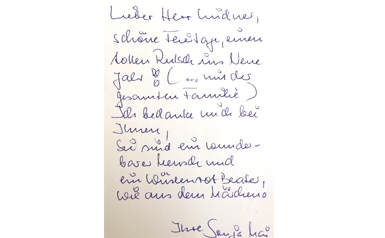 Lieber Herr Lindner,
schöne Feiertage, einen
tollen Rutsch ins Neue
Jahr !! (... mit der
gesamten Familie)
Ich bedanke mich bei
Ihnen,
Sie sind ein wunder-
barer Mensch und
ein Wüstenrot Berater,
wie aus dem Märchen.
Ihre Sonja Mai